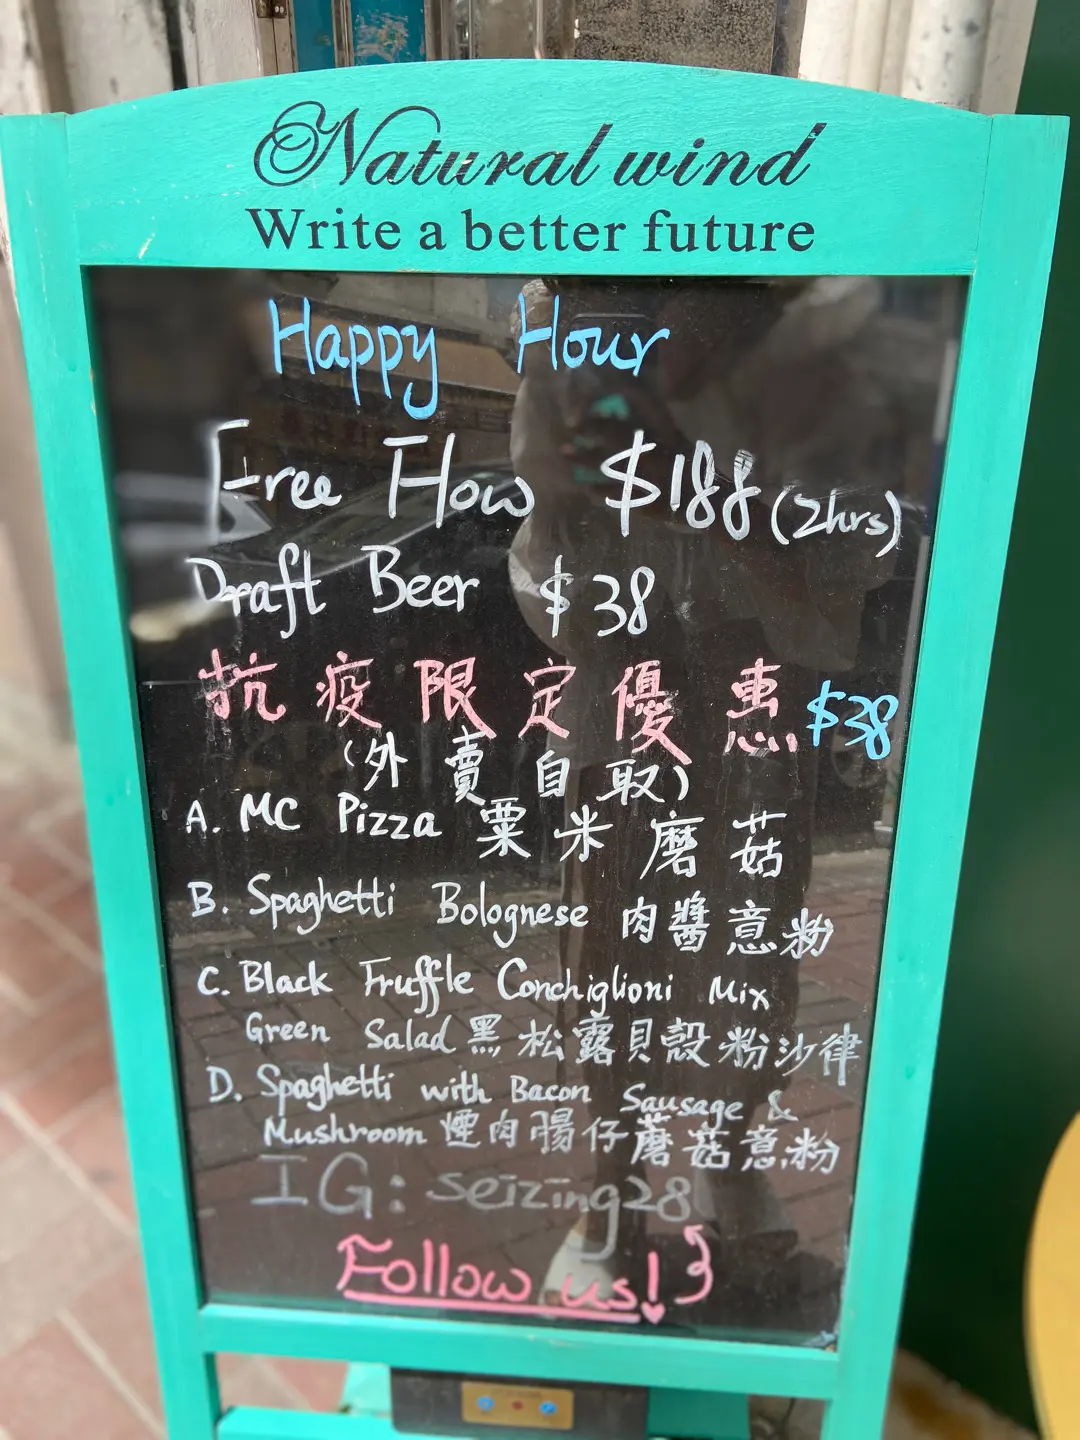 Natural wind
Write a better future
Happy Hour
Free Flow $188 (2hrs)
Draft Beer $38
抗疫限定優惠 $38
(外賣自取)
A. MC Pizza 粟米磨菇
B. Spaghetti Bolognese 肉醬意粉
C. Black Fruffle Conchiglioni Mix
Green Salad 黑松露貝殼粉沙律
D. Spaghetti with Bacon Sausage &
Mushroom 煙肉腸仔蘑菇意粉
IG: seizing28
Follow us!